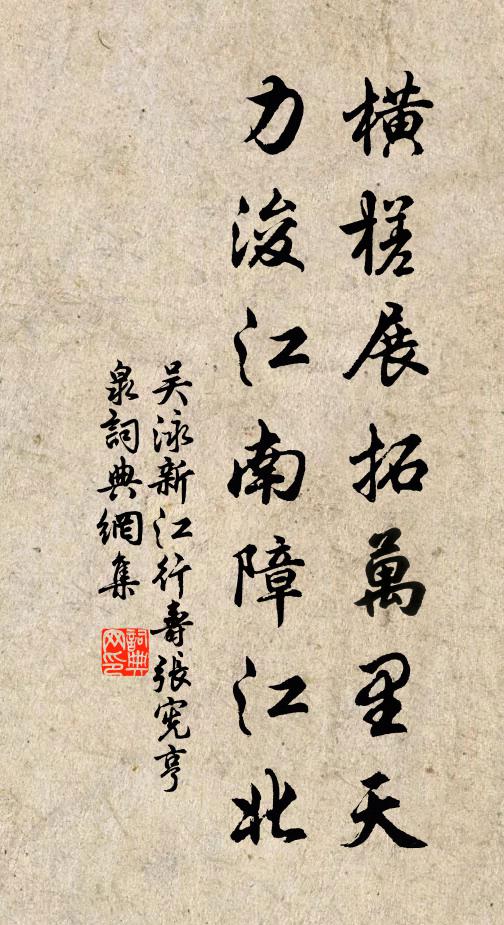 橫槎展拓萬里天
力浚江南障江北
吴泳新江行壽張憲亨
泉詞典網集
詞典
网印